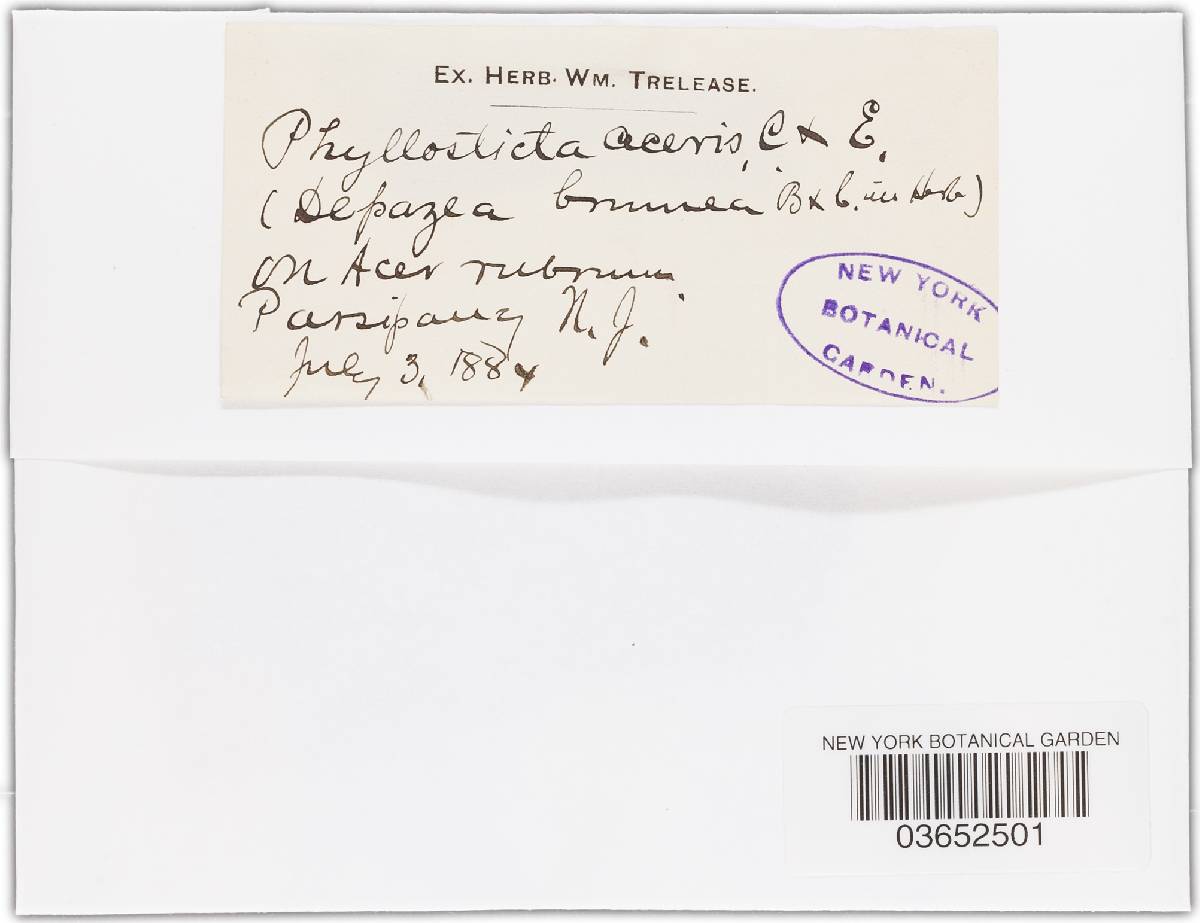 EX. HERB. WM. TRELEASE.
Phyllosticta aceris, C & E.
(Depazea brunnea B & C. in Herb.)
on Acer rubrum.
Parsipany N. J.
July 3, 1884
NEW YORK
BOTANICAL
GARDEN.
NEW YORK BOTANICAL GARDEN
03652501